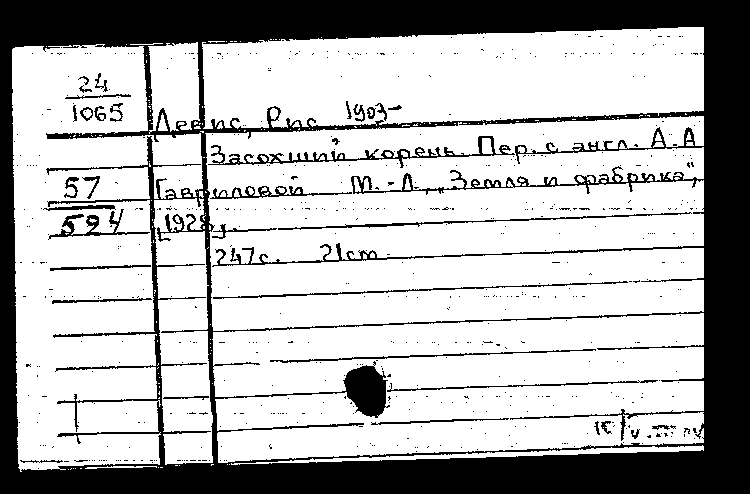 24
1065
Девис, Рис 1903-
Засохший корень. Пер. с англ. А.А
57
Гавриловой М.-Л., „Земля и фабрика",
594
[1928].
247с. 21cm.